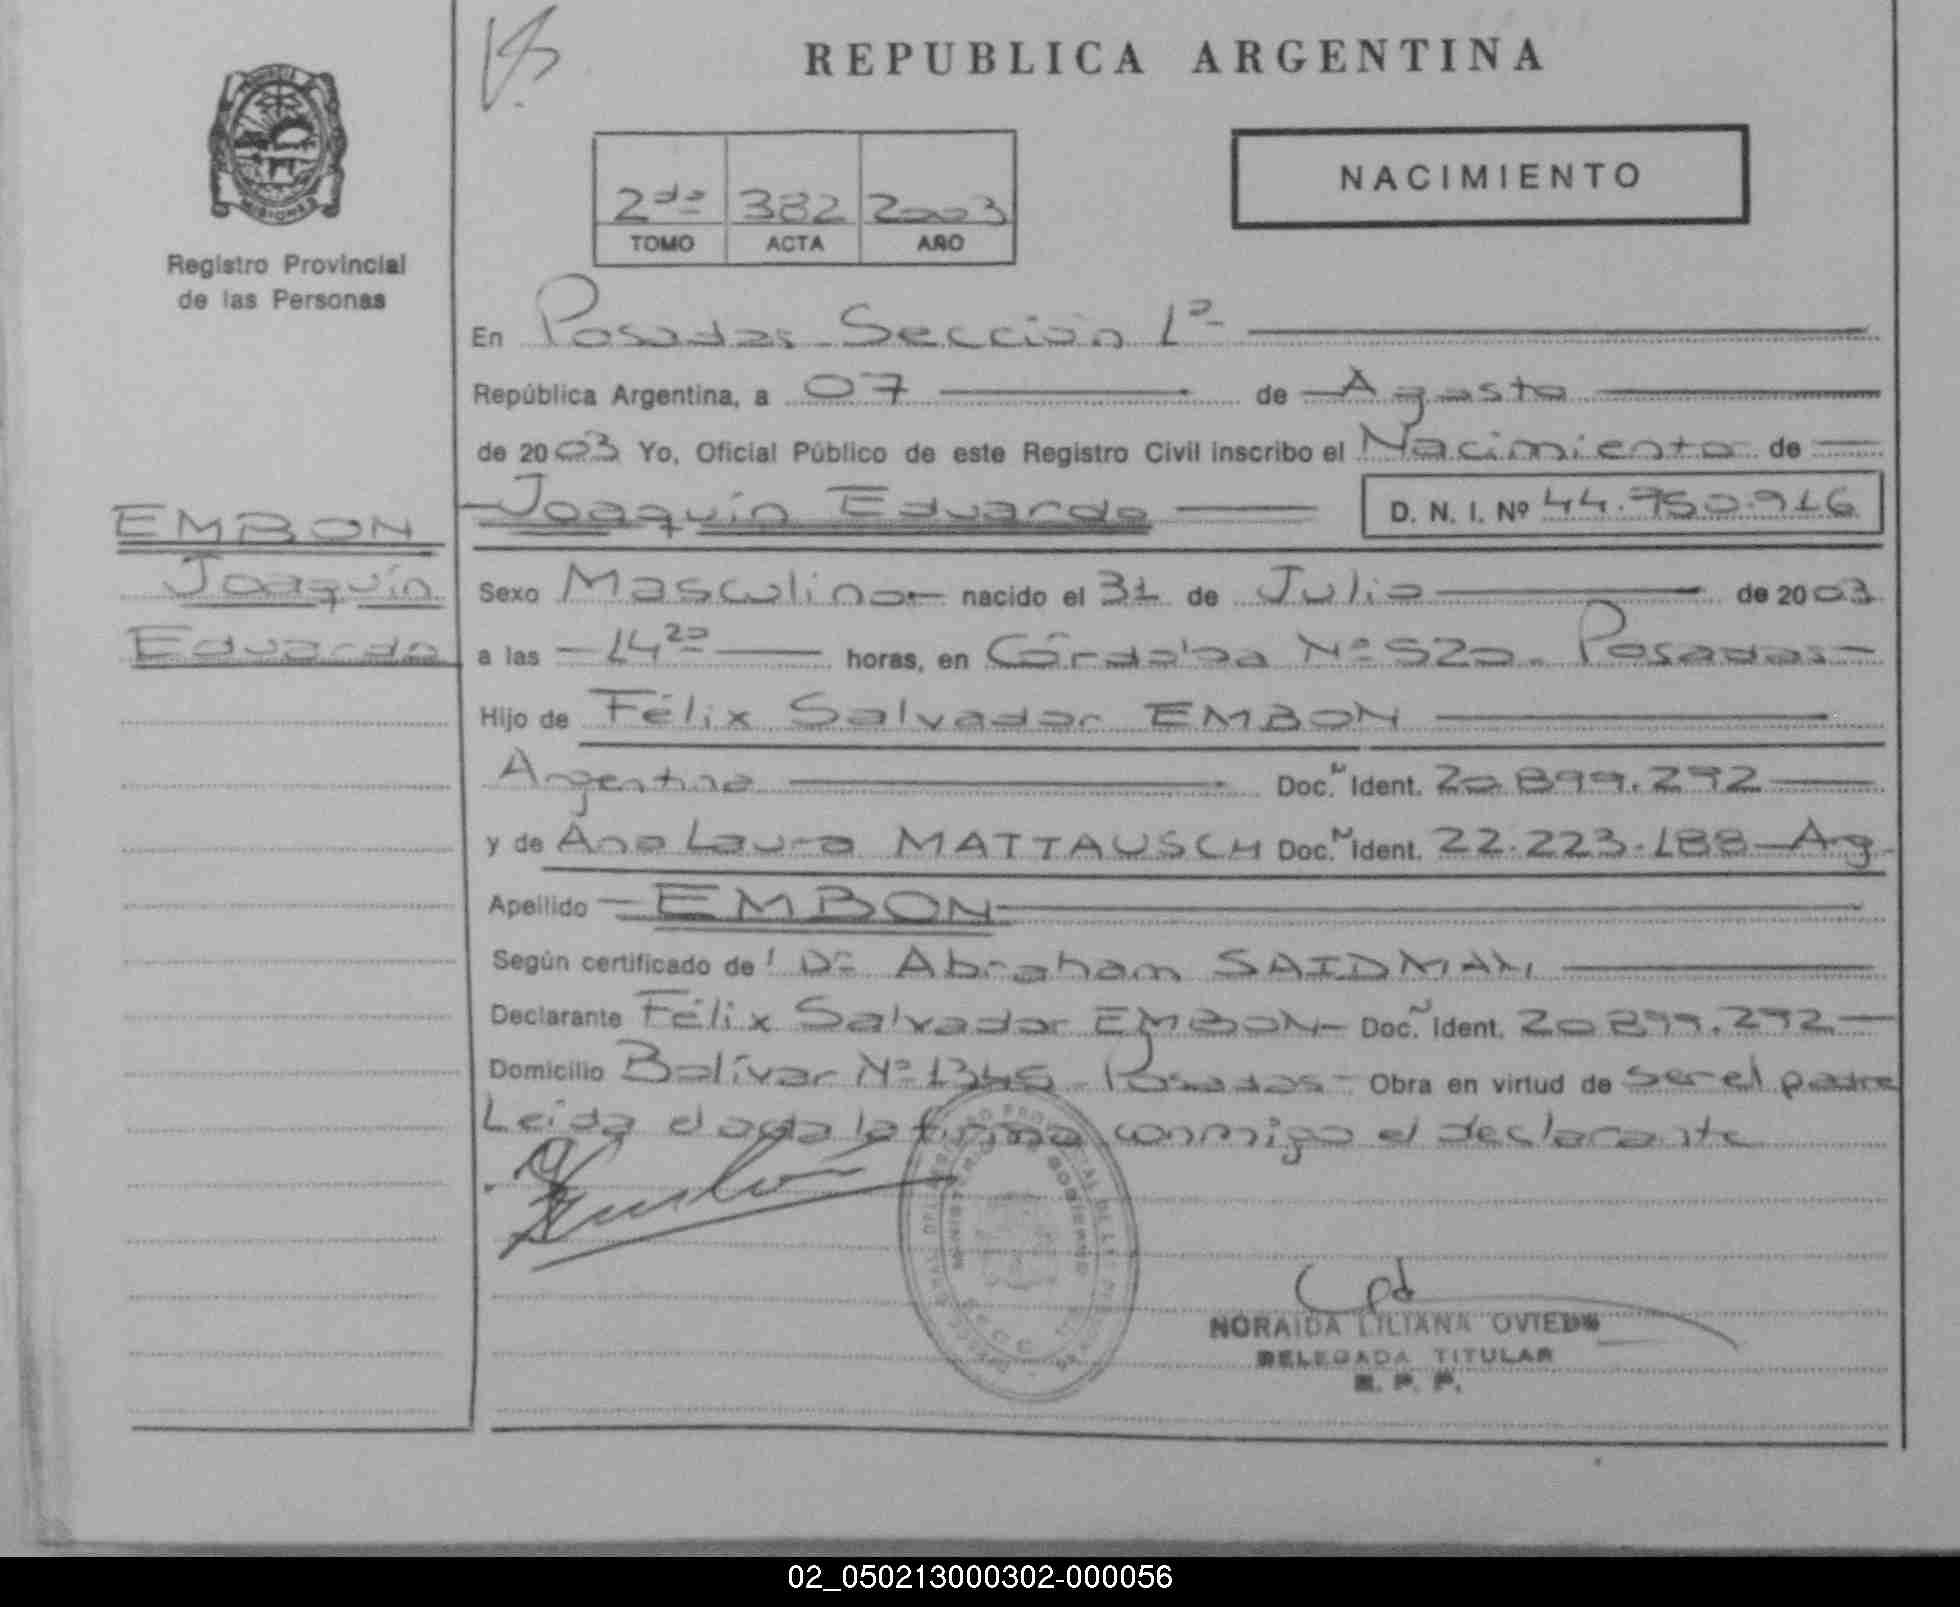 REPUBLICA ARGENTINA
MISIONES
Registro Provincial
de las Personas
2da 382 2003
TOMO ACTA AÑO
NACIMIENTO
En Posadas - Sección 1a
República Argentina, a 07 de Agosto
de 2003 Yo, Oficial Público de este Registro Civil inscribo el Nacimiento de
Joaquín Eduardo D. N. I. Nº 44.750.916
EMBON
Joaquín
Eduardo
Sexo Masculino nacido el 31 de Julio de 2003
a las 14 20 horas, en Córdoba Nº 520 - Posadas
Hijo de Félix Salvador EMBON
Argentino Doc.N Ident. 20.899.292
y de Ana Laura MATTAUSCH Doc.N Ident. 22.223.188 - Ag.
Apellido EMBON
Según certificado de Dr Abraham SAIDMAN
Declarante Félix Salvador EMBON - Doc.N Ident. 20.899.292
Domicilio Bolívar Nº 1345 - Posadas - Obra en virtud de ser el padre
Leída el acta la firma conmigo el declarante
MINISTERIO DE GOBIERNO
NORAIDA LILIANA OVIEDO
DELEGADA TITULAR
R. P. P.
02_050213000302-000056